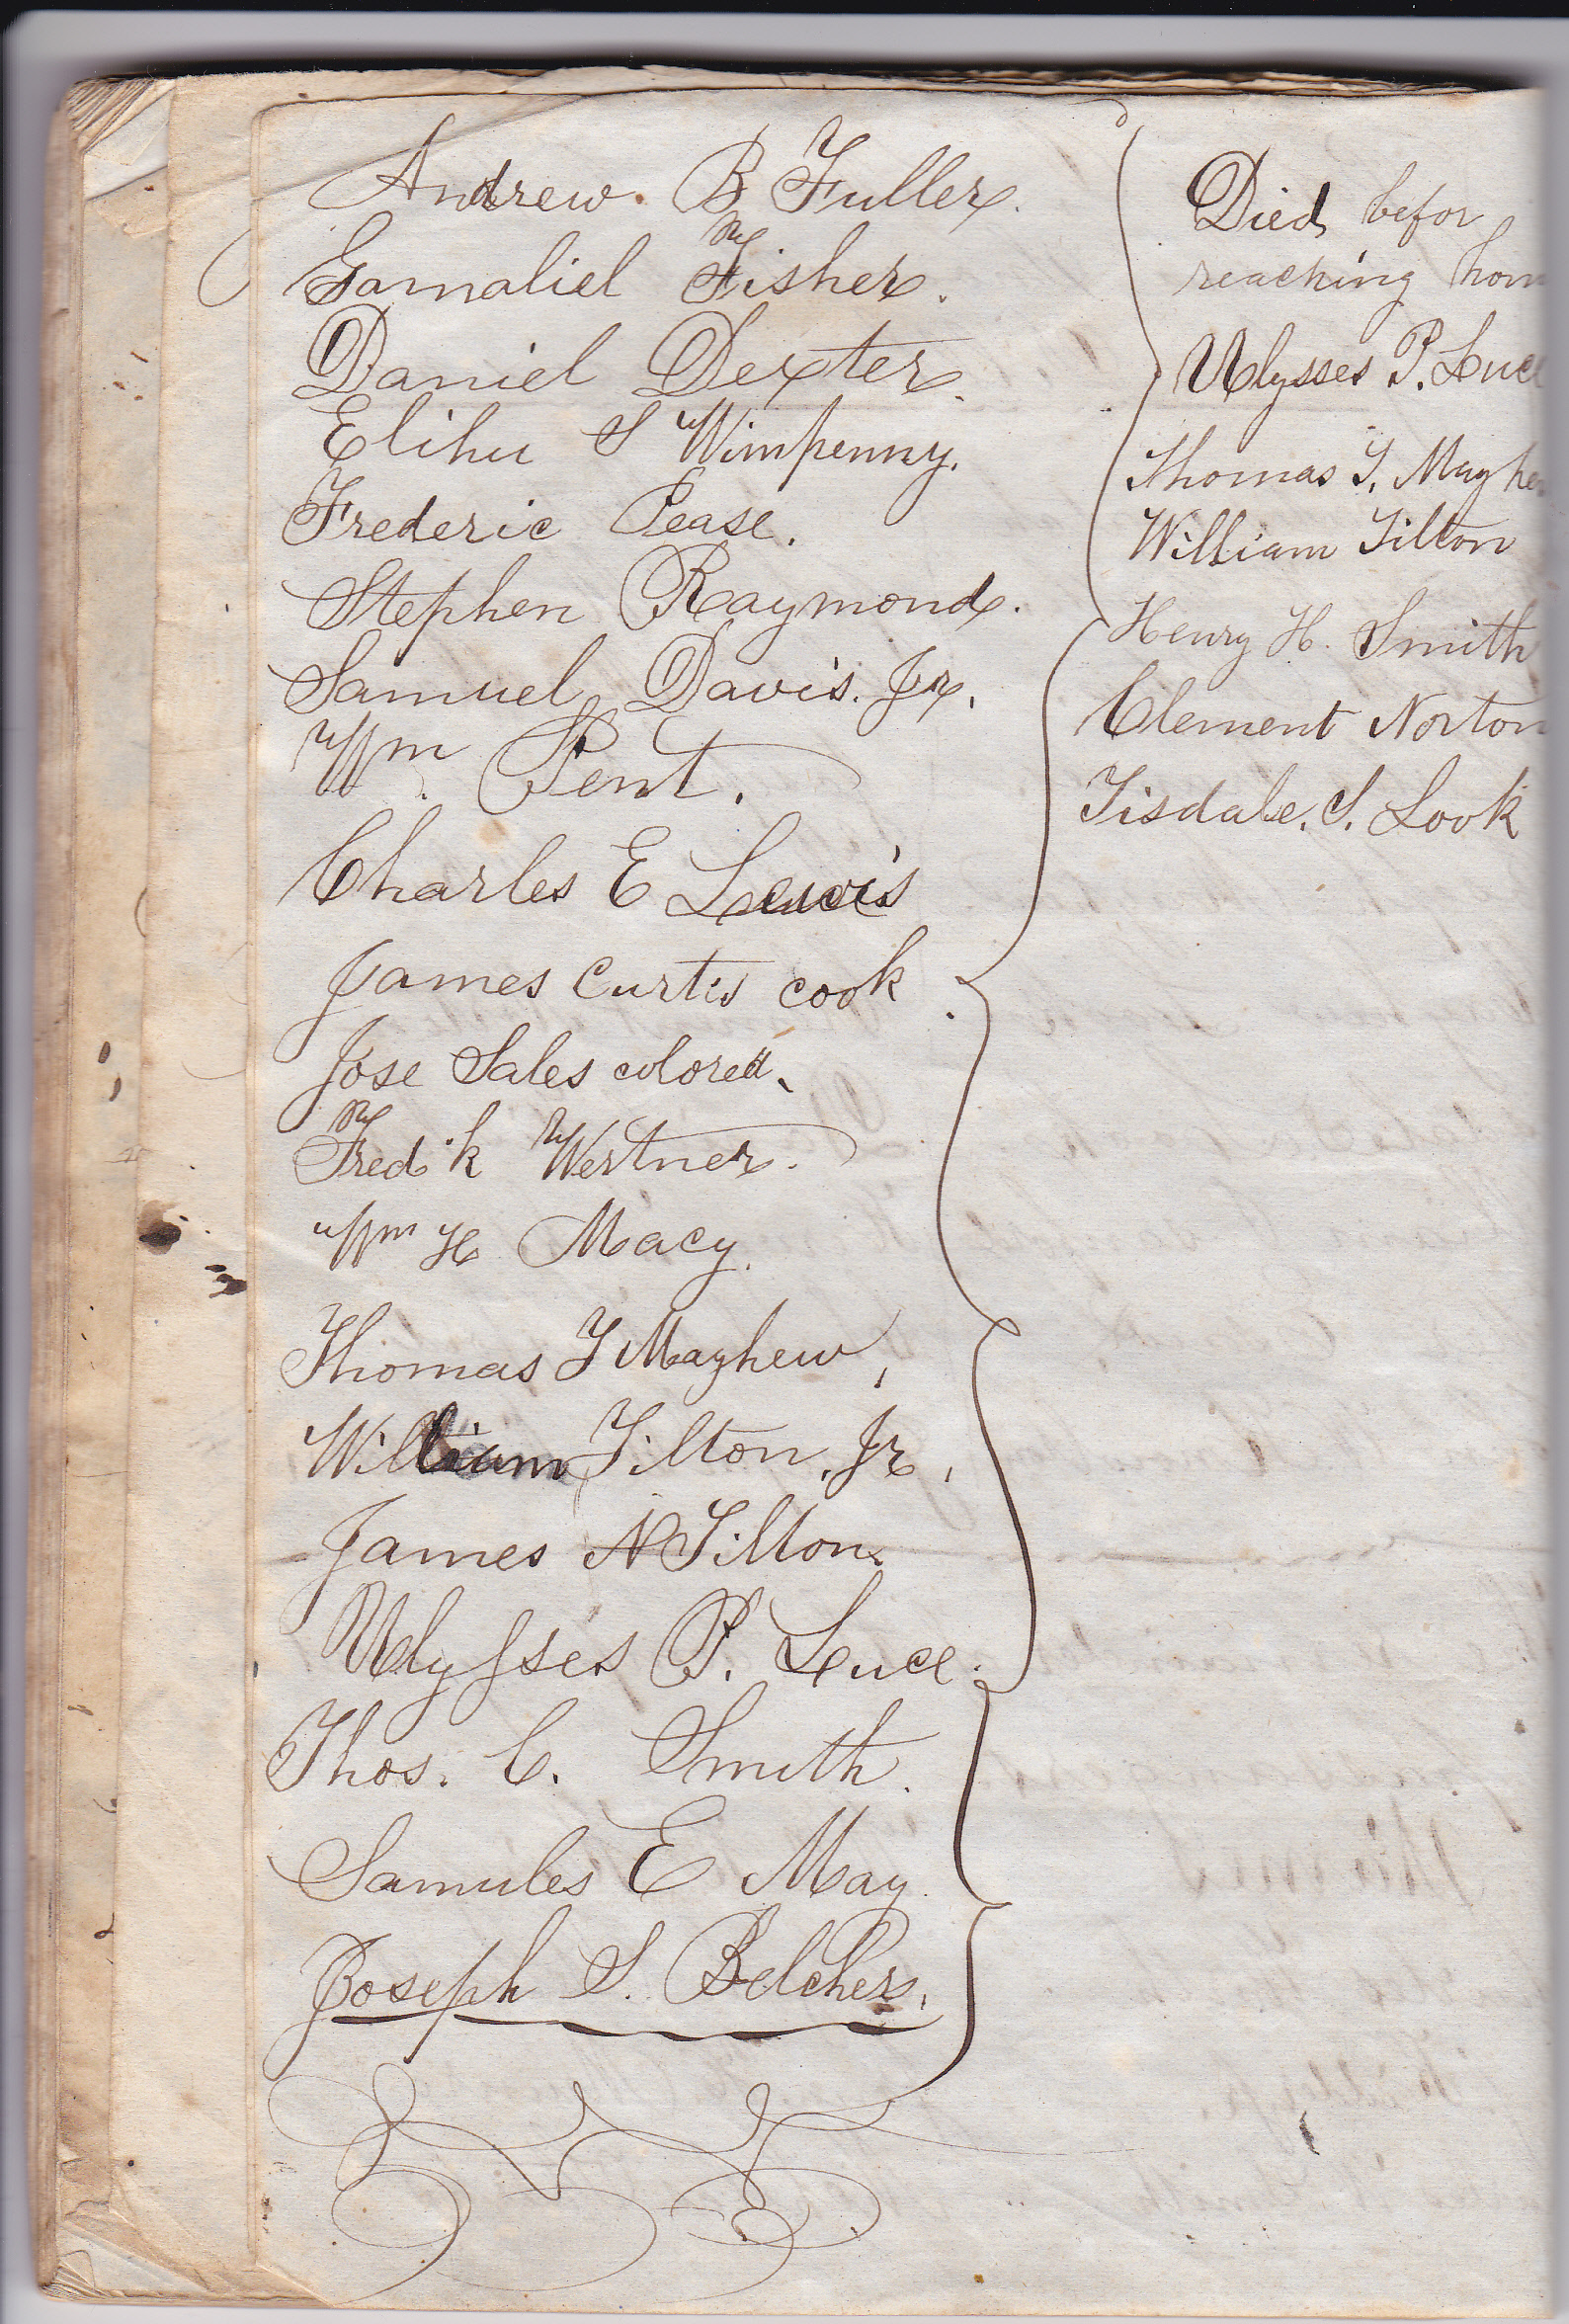 Andrew. B Fuller.
Gamaliel Fisher.
Daniel Dexter.
Elihu S Wimpenny.
Frederic Pease.
Stephen Raymond.
Samuel Davis. Jr.
Wm Pent.
Charles E Lewis
James Curtis cook
Jose Sales colored.
Fred'k Wertner.
Wm H Macy.
Thomas T Mayhew,
William Tilton, Jr,
James N Tilton.
Ulysses P. Luce.
Thos. C. Smith.
Samules E May
Joseph S. Belcher.
Died befor
reaching hom
Ulysses P. Luce
Thomas T. Mayhe
William Tilton
Henry H. Smith
Clement Norton
Tisdale. S. Look